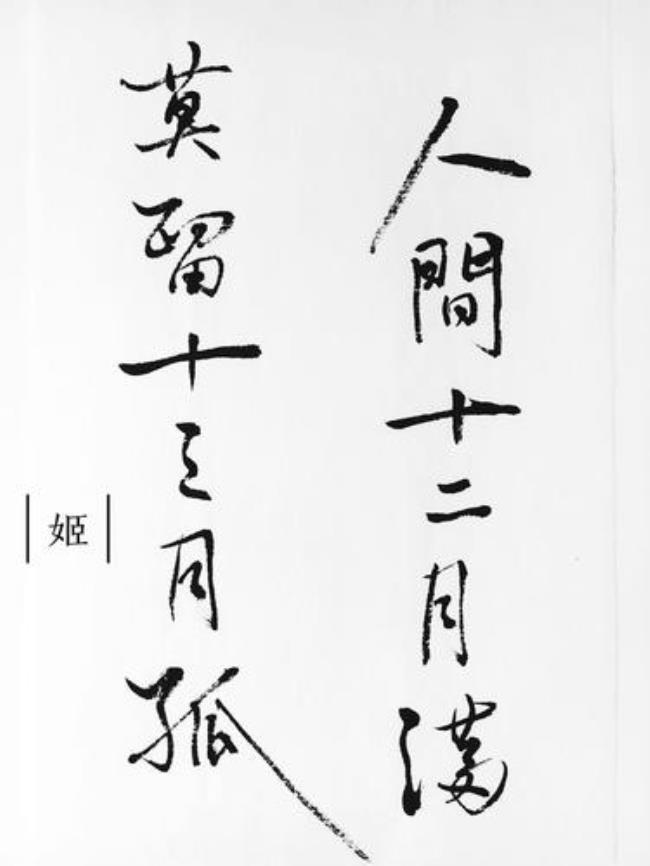 人間十二月满
莫留十三月孤
姬